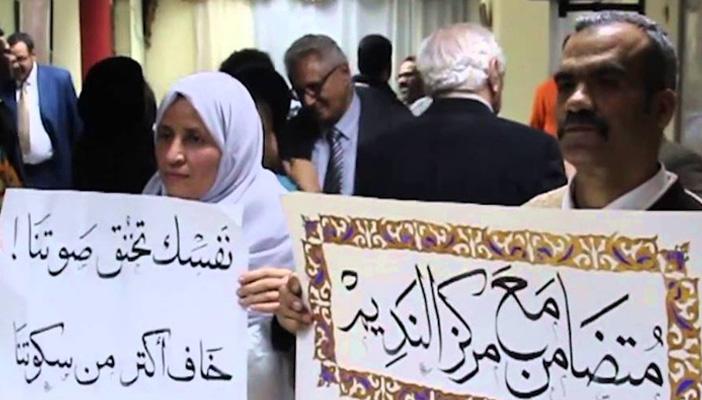 نفسك تخنق صوتنا!
خاف أكتر من سكوتنا
متضامن مع
مركز النديم